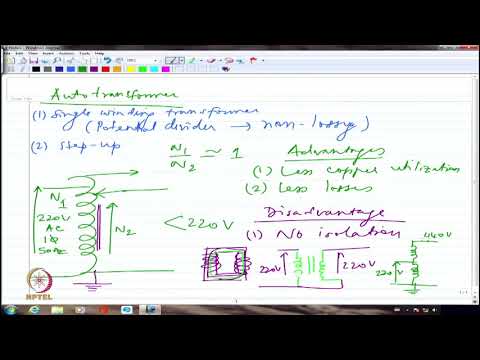 Autotransformer
(1) Single winding transformer
(Potential divider → non-lossy)
(2) Step-up
N1/N2 ~ 1
Advantages
(1) Less copper utilization
(2) Less losses
N1
220V
AC
1φ
50Hz
N2
<220V
Disadvantage
(1) No isolation
220V
220V
440V
220V
NPTEL